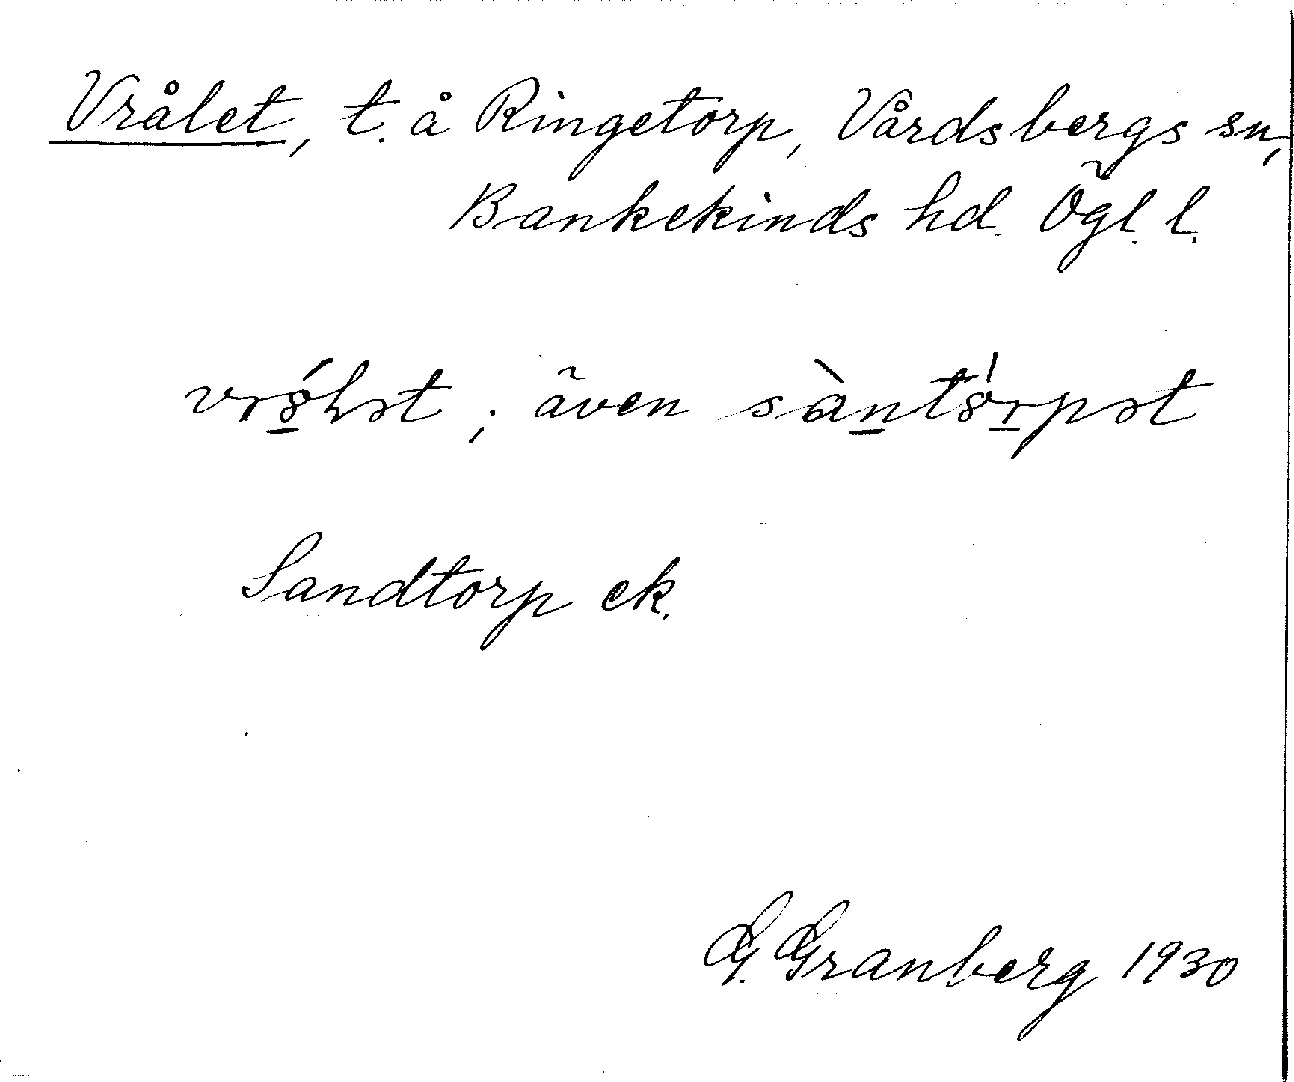 Vrålet, t. å Ringetorp, Vårdsbergs sn,
Bankekinds hd. Ögl. l.
; även
Sandtorp ek.
G. Granberg 1930